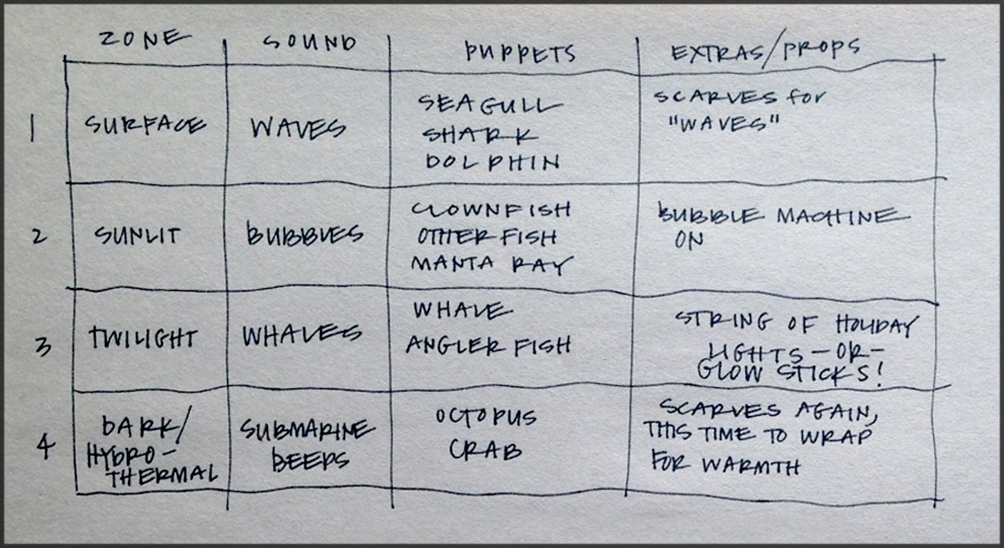 ZONE SOUND PUPPETS EXTRAS/PROPS
1 SURFACE WAVES SEAGULL SCARVES for
SHARK "WAVES"
DOLPHIN
2 SUNLIT BUBBLES CLOWNFISH BUBBLE MACHINE
OTHER FISH ON
MANTA RAY
3 TWILIGHT WHALES WHALE STRING OF HOLIDAY
ANGLER FISH LIGHTS -OR-
GLOW STICKS!
4 DARK/ SUBMARINE OCTOPUS SCARVES AGAIN,
HYDRO- BEEPS CRAB THIS TIME TO WRAP
THERMAL FOR WARMTH